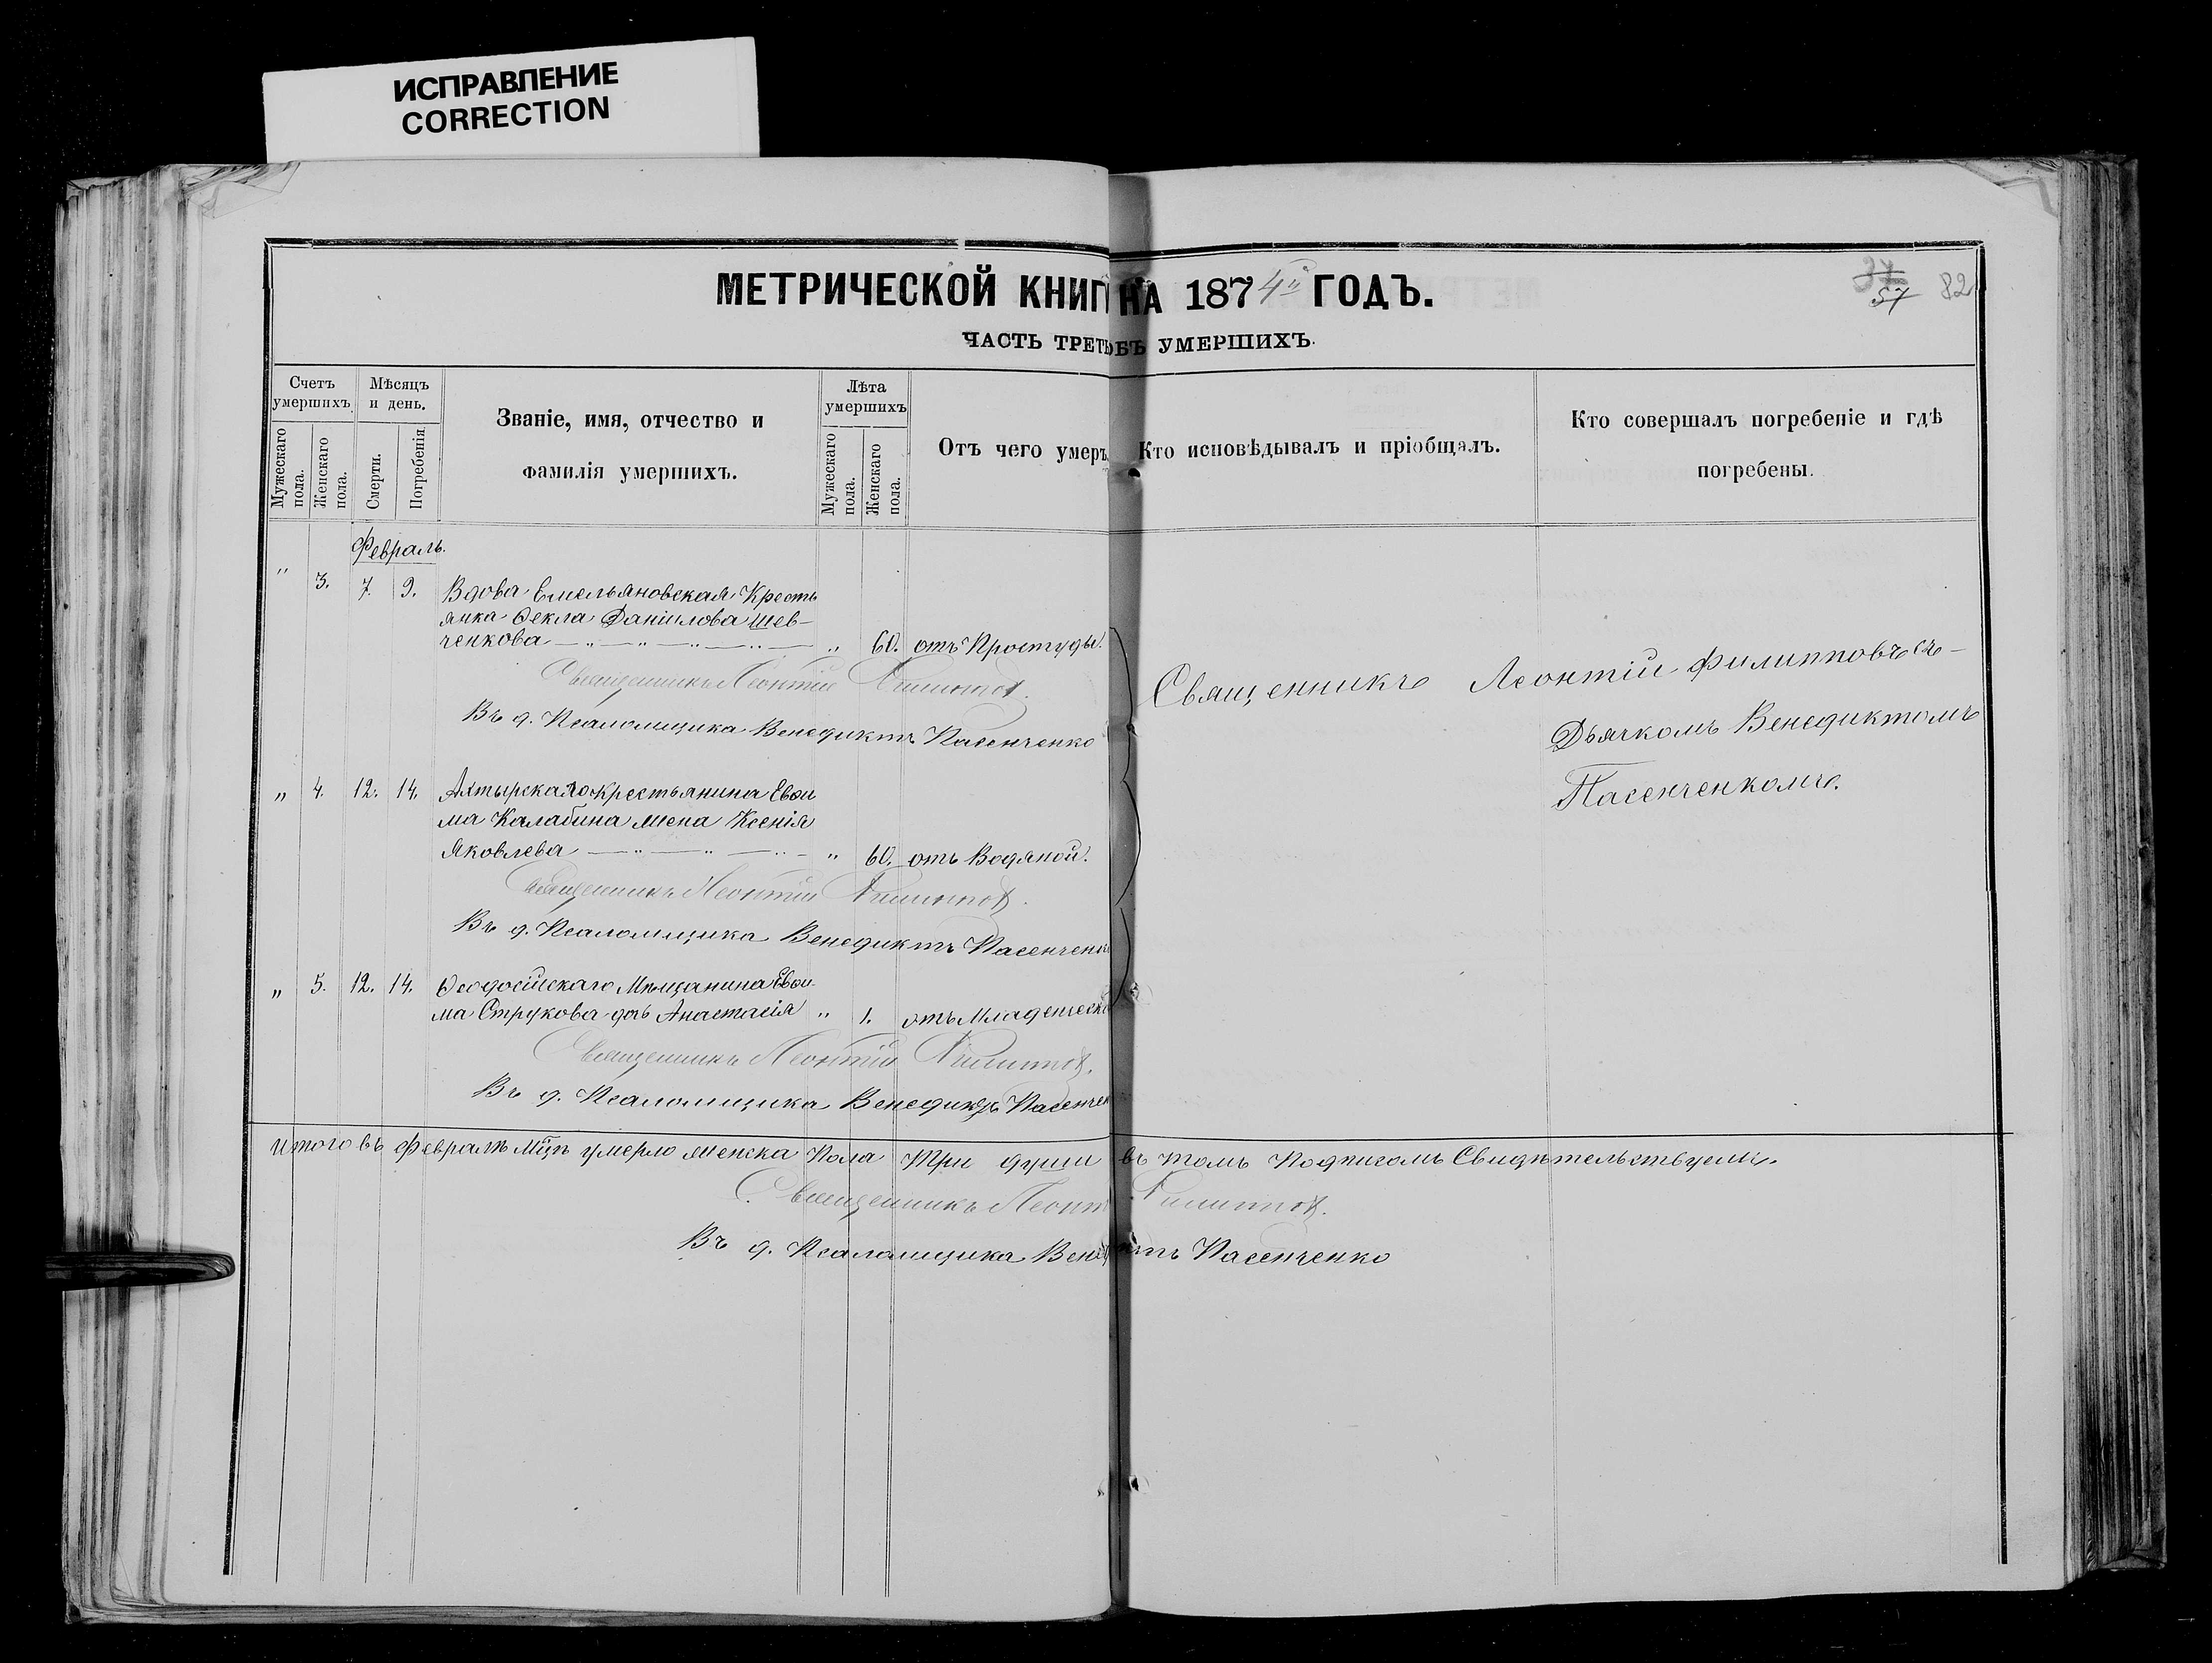 ИСПРАВЛЕНИЕ
CORRECTION
МЕТРИЧЕСКОЙ КНИГ НА 1874й ГОДЪ.
37
57 82
ЧАСТЬ ТРЕТЬ ОБЪ УМЕРШИХЪ.
Счетъ умершихъ.
Мѣсяцъ и день.
Званіе, имя, отчество и фамилія умершихъ.
Лѣта умершихъ
Отъ чего умеръ
Кто исповѣдывалъ и пріобщалъ.
Кто совершалъ погребеніе и гдѣ погребены.
Мужескаго пола.
Женскаго пола.
Смерти.
Погребенія.
Мужескаго пола.
Женскаго пола.
Февраль.
„ 3. 7. 9. Вдова Емельяновская Кресть
янка Ѳекла Даніилова Шев-
ченкова — „ — „ — „ — „ 60. отъ Простуды.
Священникъ Леонтій Филиппов.
Въ д. Псаломщика Венедиктъ Пасенченко
Священникъ Леонтій Филипповъ съ-
Дьячкомъ Венедиктомъ
Пасенченкомъ.
„ 4. 12. 14. Ахтырскаго крестьянина Евѳи
ма Калабина жена Ксенія
Яковлева — „ — „ — „ — „ 60. отъ Водяной.
Священникъ Леонтій Филиппов.
Въ д. Псаломщика Венедиктъ Пасенченк
„ 5. 12. 14. Ѳеодосійскаго Мѣщанина Евѳи-
ма Струкова дочь Анастасія „ 1. отъ Младенческ
Священникъ Леонтій Филиппов.
Въ д. Псаломщика Венедиктъ Пасенчен
Итого въ Февралѣ Мцѣ умерло женска Пола Три души въ томъ Подписомъ Свидѣтельствуемъ.
Священникъ Леонт Филиппов.
Въ д. Псаломщика Венедиктъ Пасенченко